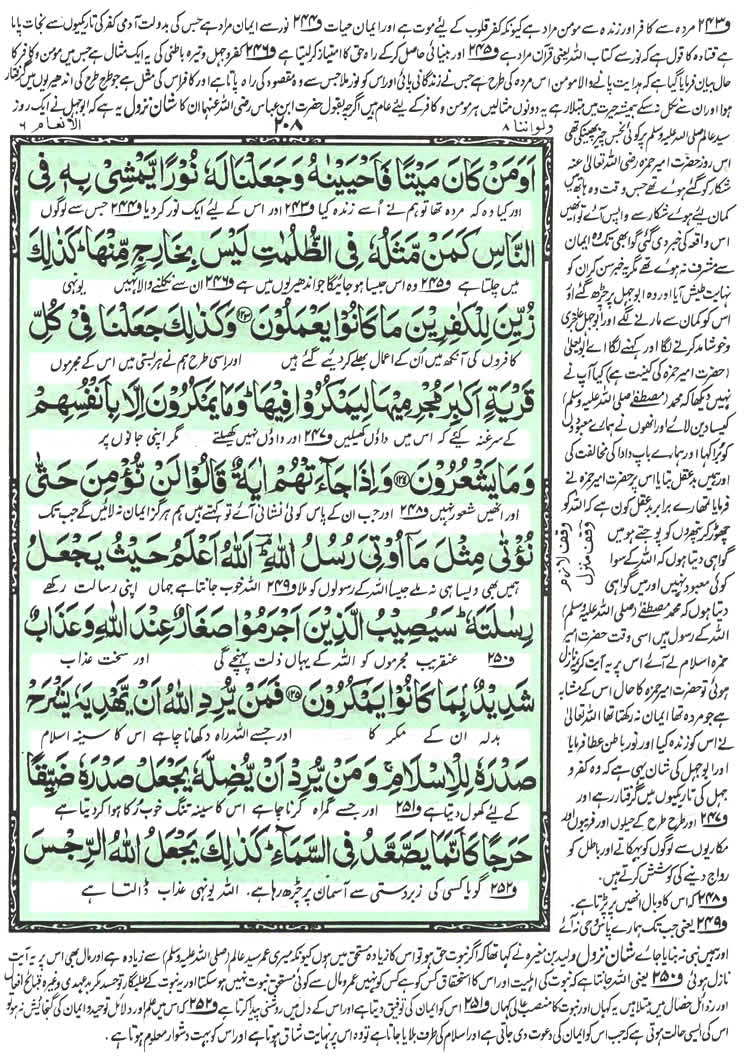 ف۲۴۳ مردہ سے کافر اور زندہ سے مومن مراد ہے کیونکہ کفر قلوب کے لیئے موت ہے اور ایمان حیات ف۲۴۴ نور سے ایمان مراد ہے جس کی بدولت آدمی کفر کی تاریکیوں سے نجات پاتا
ہے قتادہ کا قول ہے کہ نور سے کتاب اللہ یعنی قرآن مراد ہے ف۲۴۵ اور بینائی حاصل کرکے راہ حق کا امتیاز کرلیتا ہے ف۲۴۶ کفر و جہل و تیرہ باطنی کی یہ ایک مثال ہے جس میں مومن و کافر کا
حال بیان فرمایا گیا ہے کہ ہدایت پانے والا مومن اس مردہ کی طرح ہے جس نے زندگانی پائی اور اس کو نور ملا جس سے وہ مقصود کی راہ پاتا ہے اور کافر اس کی مثل ہے جو طرح طرح کی اندھیریوں میں گرفتار
ہوا اور ان سے نکل نہ سکے ہمیشہ حیرت میں مبتلا رہے یہ دونوں مثالیں ہر مومن و کافر کے لیئے عام ہیں اگرچہ بقول حضرت ابن عباس رضی اللہ عنہما ان کا شان نزول یہ ہے کہ ابوجہل نے ایک روز
ولواننا ۸ ۲۰۸ الانعام ۶
اَوَمَنْ كَانَ مَيْتًا فَاَحْيَيْنٰهُ وَجَعَلْنَا لَهٗ نُوْرًا يَّمْشِيْ بِهٖ فِي
اور کیا وہ کہ مردہ تھا تو ہم نے اُسے زندہ کیا ف۲۴۳ اور اس کے لیئے ایک نور کردیا ف۲۴۴ جس سے لوگوں
النَّاسِ كَمَنْ مَّثَلُهٗ فِي الظُّلُمٰتِ لَيْسَ بِخَارِجٍ مِّنْهَا ؕ كَذٰلِكَ
میں چلتا ہے ف۲۴۵ وہ اس جیسا ہو جائیگا جو اندھیریوں میں ہے ف۲۴۶ ان سے نکلنے والا نہیں یونہی
زُيِّنَ لِلْكٰفِرِيْنَ مَا كَانُوْا يَعْمَلُوْنَ ۝۱۲۲ وَكَذٰلِكَ جَعَلْنَا فِيْ كُلِّ
کافروں کی آنکھ میں اُن کے اعمال بھلے کردیئے گئے ہیں اور اسی طرح ہم نے ہر بستی میں اس کے مجرموں
قَرْيَةٍ اَكٰبِرَ مُجْرِمِيْهَا لِيَمْكُرُوْا فِيْهَا ؕ وَمَا يَمْكُرُوْنَ اِلَّا بِاَنْفُسِهِمْ
کے سرغنہ کیئے کہ اس میں داؤں کھیلیں ف۲۴۷ اور داؤں نہیں کھیلتے مگر اپنی جانوں پر
وَمَا يَشْعُرُوْنَ ۝۱۲۳ وَاِذَا جَآءَتْهُمْ اٰيَةٌ قَالُوْا لَنْ نُّؤْمِنَ حَتّٰى
اور انھیں شعور نہیں ف۲۴۸ اور جب ان کے پاس کوئی نشانی آئے تو کہتے ہیں ہم ہرگز ایمان نہ لائیں گے جب تک
نُؤْتٰى مِثْلَ مَآ اُوْتِيَ رُسُلُ اللّٰهِ ؔۘ اَللّٰهُ اَعْلَمُ حَيْثُ يَجْعَلُ
ہمیں بھی ویسا ہی نہ ملے جیسا اللہ کے رسولوں کو ملا ف۲۴۹ اللہ خوب جانتا ہے جہاں اپنی رسالت رکھے
رِسٰلَتَهٗ ؕ سَيُصِيْبُ الَّذِيْنَ اَجْرَمُوْا صَغَارٌ عِنْدَ اللّٰهِ وَعَذَابٌ
ف۲۵۰ عنقریب مجرموں کو اللہ کے یہاں ذلت پہنچے گی اور سخت عذاب
شَدِيْدٌۢ بِمَا كَانُوْا يَمْكُرُوْنَ ۝۱۲۴ فَمَنْ يُّرِدِ اللّٰهُ اَنْ يَّهْدِيَهٗ يَشْرَحْ
بدلہ ان کے مکر کا اور جسے اللہ راہ دکھانا چاہے اس کا سینہ اسلام
صَدْرَهٗ لِلْاِسْلَامِ ۚ وَمَنْ يُّرِدْ اَنْ يُّضِلَّهٗ يَجْعَلْ صَدْرَهٗ ضَيِّقًا
کے لیئے کھول دیتا ہے ف۲۵۱ اور جسے گمراہ کرنا چاہے اس کا سینہ تنگ خوب رُکا ہوا کردیتا ہے
حَرَجًا كَاَنَّمَا يَصَّعَّدُ فِي السَّمَآءِ ؕ كَذٰلِكَ يَجْعَلُ اللّٰهُ الرِّجْسَ
ف۲۵۲ گویا کسی کی زبردستی سے آسمان پر چڑھ رہا ہے۔ اللہ یونہی عذاب ڈالتا ہے
وقف لازم
وقف منزل
سید عالم صلی اللہ علیہ وسلم پر کوئی نجس چیز پھینکی تھی
اس روز حضرت امیر حمزہ رضی اللہ تعالٰی عنہ
شکار کو گئے ہوئے تھے جس وقت وہ ہاتھ میں
کمان لیئے ہوئے شکار سے واپس آئے تو انھیں
اس واقعہ کی خبر دی گئی گو ابھی تک وہ ایمان
سے مشرف نہ ہوئے تھے مگر یہ خبر سن کر ان کو
نہایت طیش آیا اور وہ ابوجہل پر چڑھ گئے اور
اس کو کمان سے مارنے لگے اور ابوجہل عاجزی
و خوشامد کرنے لگا اور کہنے لگا اے ابو یعلیٰ
(حضرت امیر حمزہ کی کنیت ہے) کیا آپ نے
نہیں دیکھا کہ محمد (مصطفےٰ صلی اللہ علیہ وسلم)
کیسا دین لائے اور انھوں نے ہمارے معبودوں
کو بُرا کہا اور ہمارے باپ دادا کی مخالفت کی
اور ہمیں بدعقل بتایا اس پر حضرت امیر حمزہ نے
فرمایا تمھارے برابر بدعقل کون ہے کہ اللہ کو
چھوڑ کر پتھروں کو پوجتے ہو میں
گواہی دیتا ہوں کہ اللہ کے سوا
کوئی معبود نہیں اور میں گواہی
دیتا ہوں کہ محمد مصطفےٰ (صلی اللہ علیہ وسلم)
اللہ کے رسول ہیں اسی وقت حضرت امیر
حمزہ اسلام لے آئے اس پر یہ آیت کریمہ نازل
ہوئی تو حضرت امیر حمزہ کا حال اس کے مشابہ
ہے جو مردہ تھا ایمان نہ رکھتا تھا اللہ تعالیٰ
نے اس کو زندہ کیا اور نور باطن عطا فرمایا
اور ابوجہل کی شان یہی ہے کہ وہ کفر و
جہل کی تاریکیوں میں گرفتار رہے اور
ف۲۴۷ اور طرح طرح کے حیلوں اور فریبوں اور
مکاریوں سے لوگوں کو بہکاتے اور باطل کو
رواج دینے کی کوشش کرتے ہیں۔
ف۲۴۸ کہ اس کا وبال انھیں پر پڑتا ہے۔
ف۲۴۹ یعنی جب تک ہمارے پاس وحی نہ آئے
اور ہمیں نبی نہ بنایا جائے شان نزول ولید بن مغیرہ نے کہا تھا کہ اگر نبوت حق ہو تو اس کا زیادہ مستحق میں ہوں کیونکہ میری عمر سید عالم (صلی اللہ علیہ وسلم) سے زیادہ ہے اور مال بھی اس پر یہ آیت
نازل ہوئی ف۲۵۰ یعنی اللہ جانتا ہے کہ نبوت کی اہلیت اور اس کا استحقاق کس کو ہے کس کو نہیں عمر و مال سے کوئی مستحق نبوت نہیں ہوسکتا اور یہ نبوت کے طلبگار تو حسد مکر بدعہدی وغیرہ قبائح افعال
اور رذائل خصال میں مبتلا ہیں یہ کہاں اور نبوت کا منصب عالی کہاں ف۲۵۱ اس کو ایمان کی توفیق دیتا ہے اور اس کے دل میں روشنی پیدا کرتا ہے ف۲۵۲ کہ اس میں علم اور دلائل توحید و ایمان کی گنجائش نہ ہو تو
اس کی ایسی حالت ہوتی ہے کہ جب اس کو ایمان کی دعوت دی جاتی ہے اور اسلام کی طرف بلایا جاتا ہے تو وہ اس پر نہایت شاق ہوتا ہے اور اس کو بہت دشوار معلوم ہوتا ہے۔